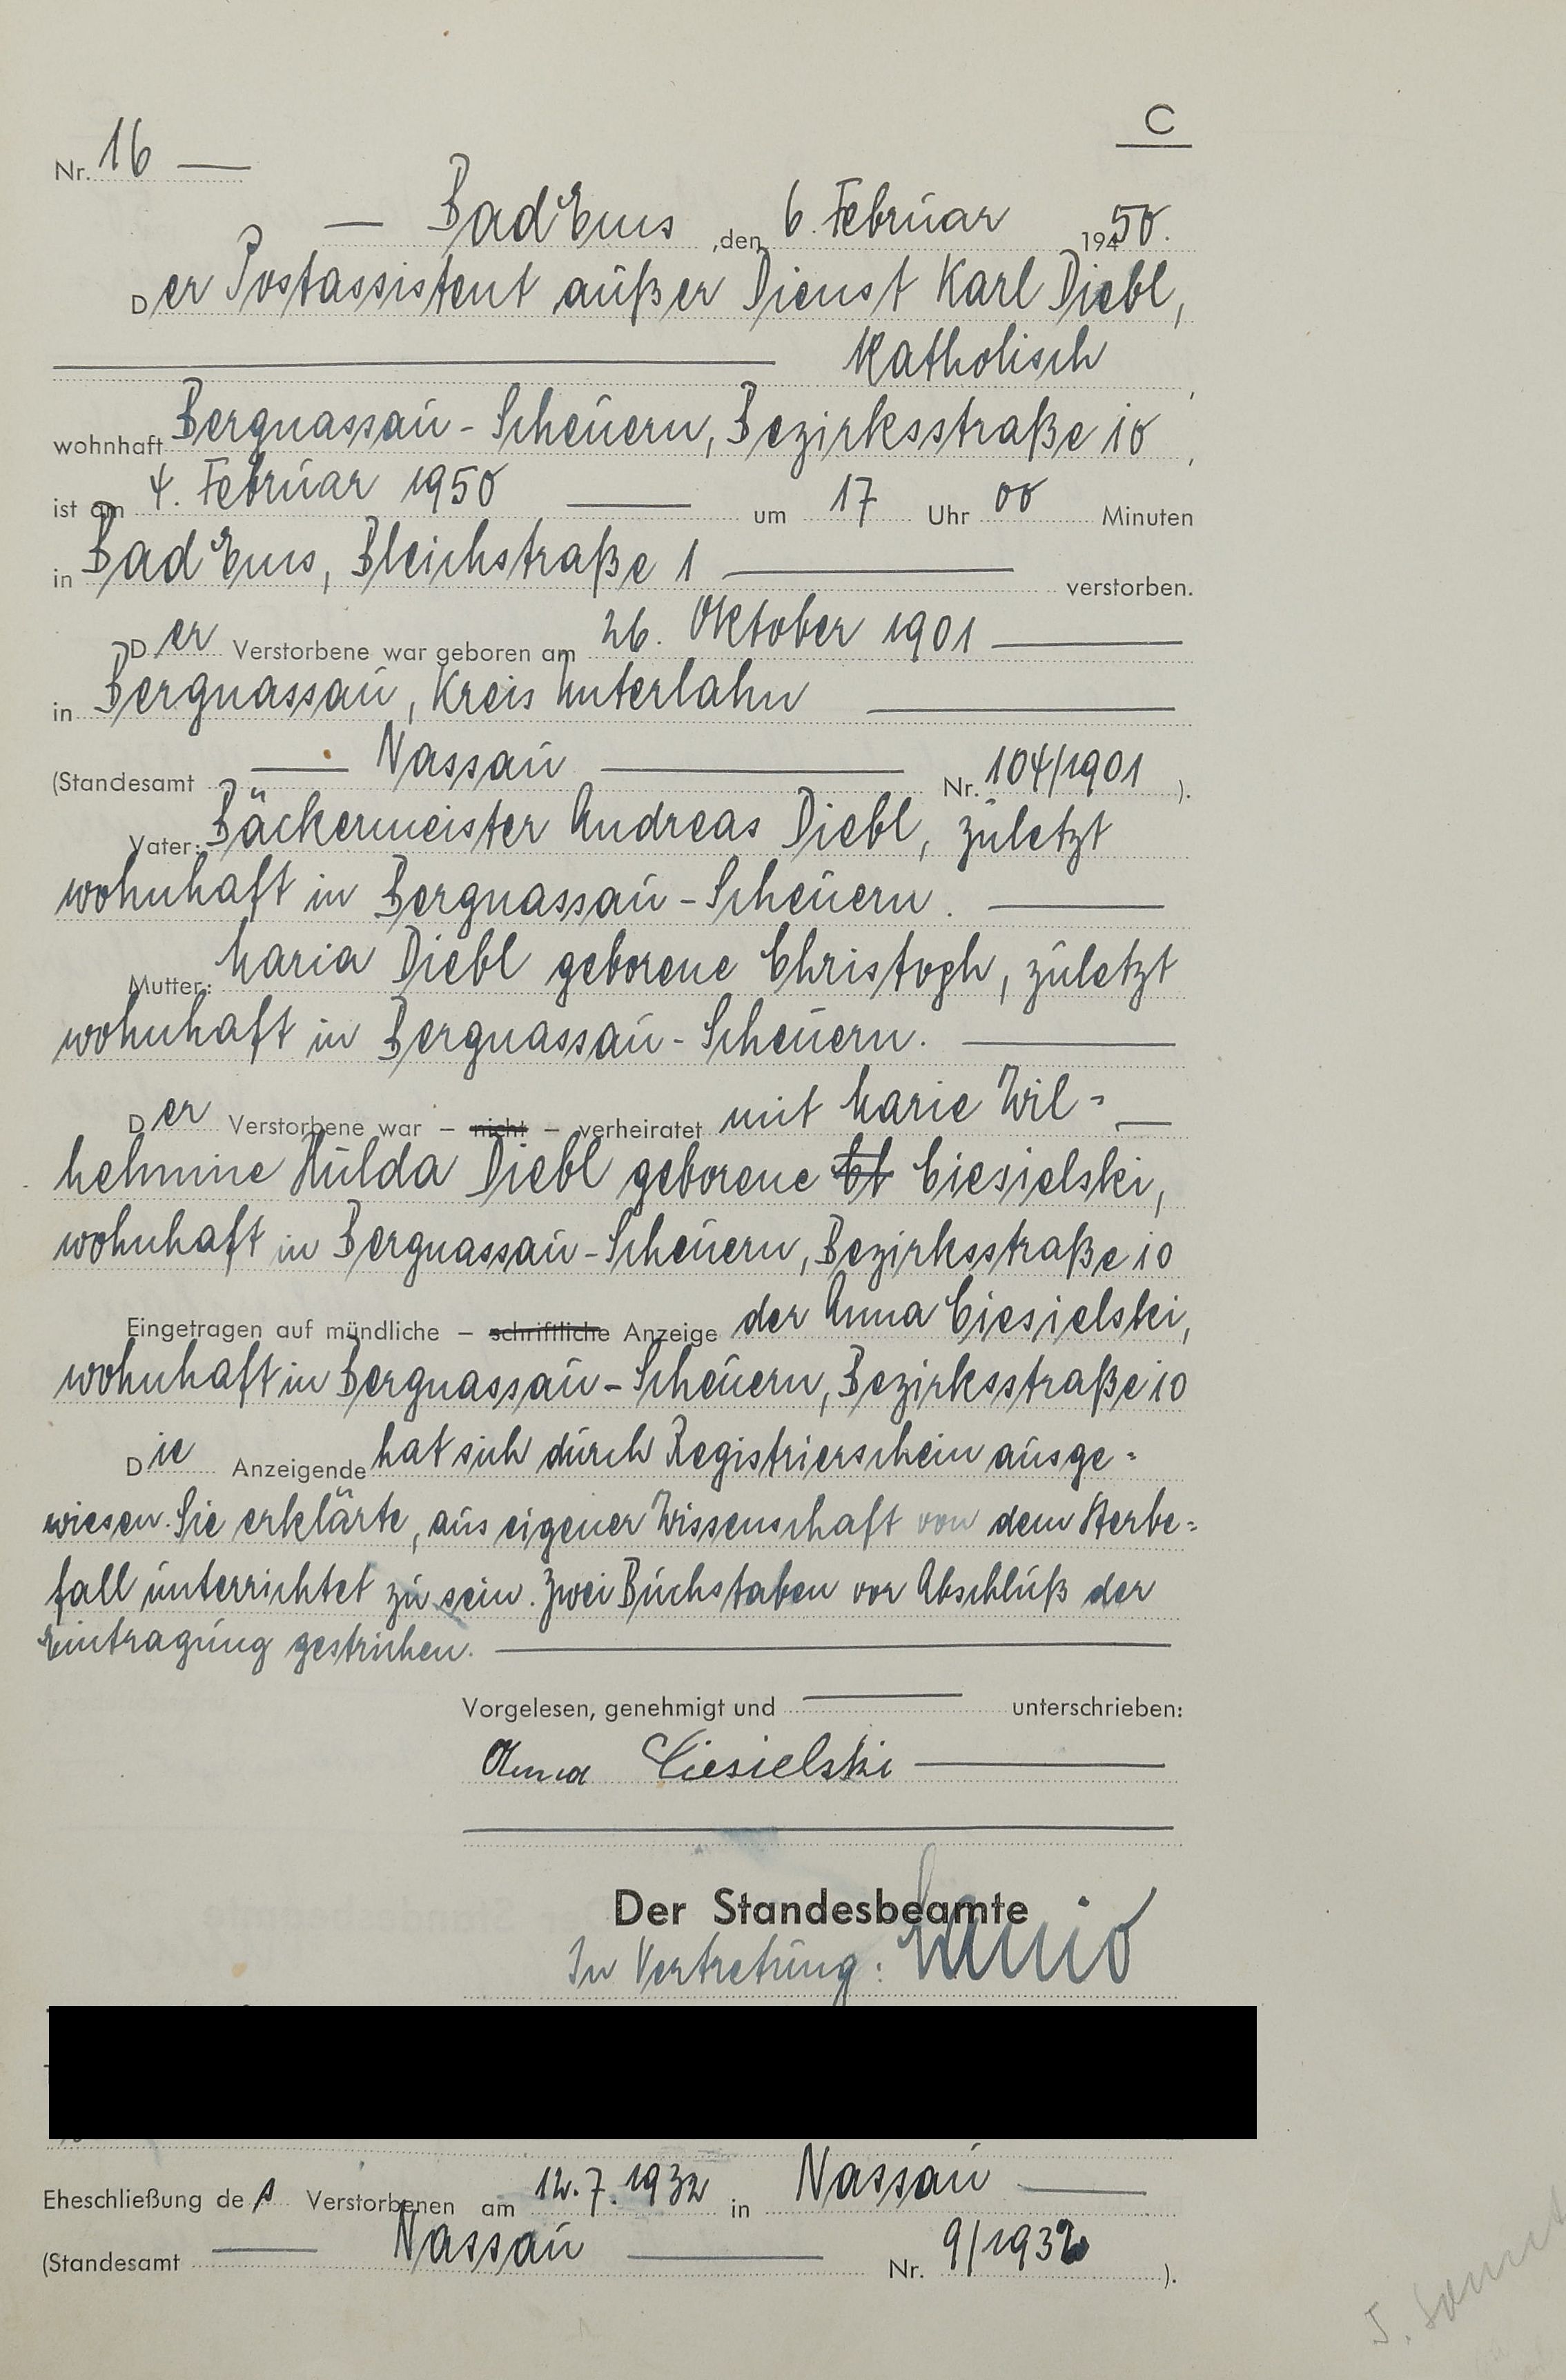 C
Nr. 16
Bad Ems, den 6. Februar 1950.
Der Postassistent außer Dienst Karl Diebl,
Katholisch,
wohnhaft Bergnassau-Scheuern, Bezirksstraße 10,
ist am 4. Februar 1950 um 17 Uhr 00 Minuten
in Bad Ems, Bleichstraße 1 verstorben.
Der Verstorbene war geboren am 26. Oktober 1901
in Bergnassau, Kreis Unterlahn
(Standesamt Nassau Nr. 104/1901 ).
Vater: Bäckermeister Andreas Diebl, zuletzt
wohnhaft in Bergnassau-Scheuern.
Mutter: Maria Diebl geborene Christoph, zuletzt
wohnhaft in Bergnassau-Scheuern.
Der Verstorbene war – nicht – verheiratet mit Marie Wil=
helmine Hulda Diebl geborene Ciesielski,
wohnhaft in Bergnassau-Scheuern, Bezirksstraße 10
Eingetragen auf mündliche – schriftliche Anzeige der Anna Ciesielski,
wohnhaft in Bergnassau-Scheuern, Bezirksstraße 10
Die Anzeigende hat sich durch Registrierschein ausge=
wiesen. Sie erklärte, aus eigener Wissenschaft von dem Sterbe=
fall unterrichtet zu sein. Zwei Buchstaben vor Abschluß der
Eintragung gestrichen.
Vorgelesen, genehmigt und unterschrieben:
Anna Ciesielski
Der Standesbeamte
In Vertretung:
Eheschließung des Verstorbenen am 12.7.1932 in Nassau
(Standesamt Nassau Nr. 9/1932 ).